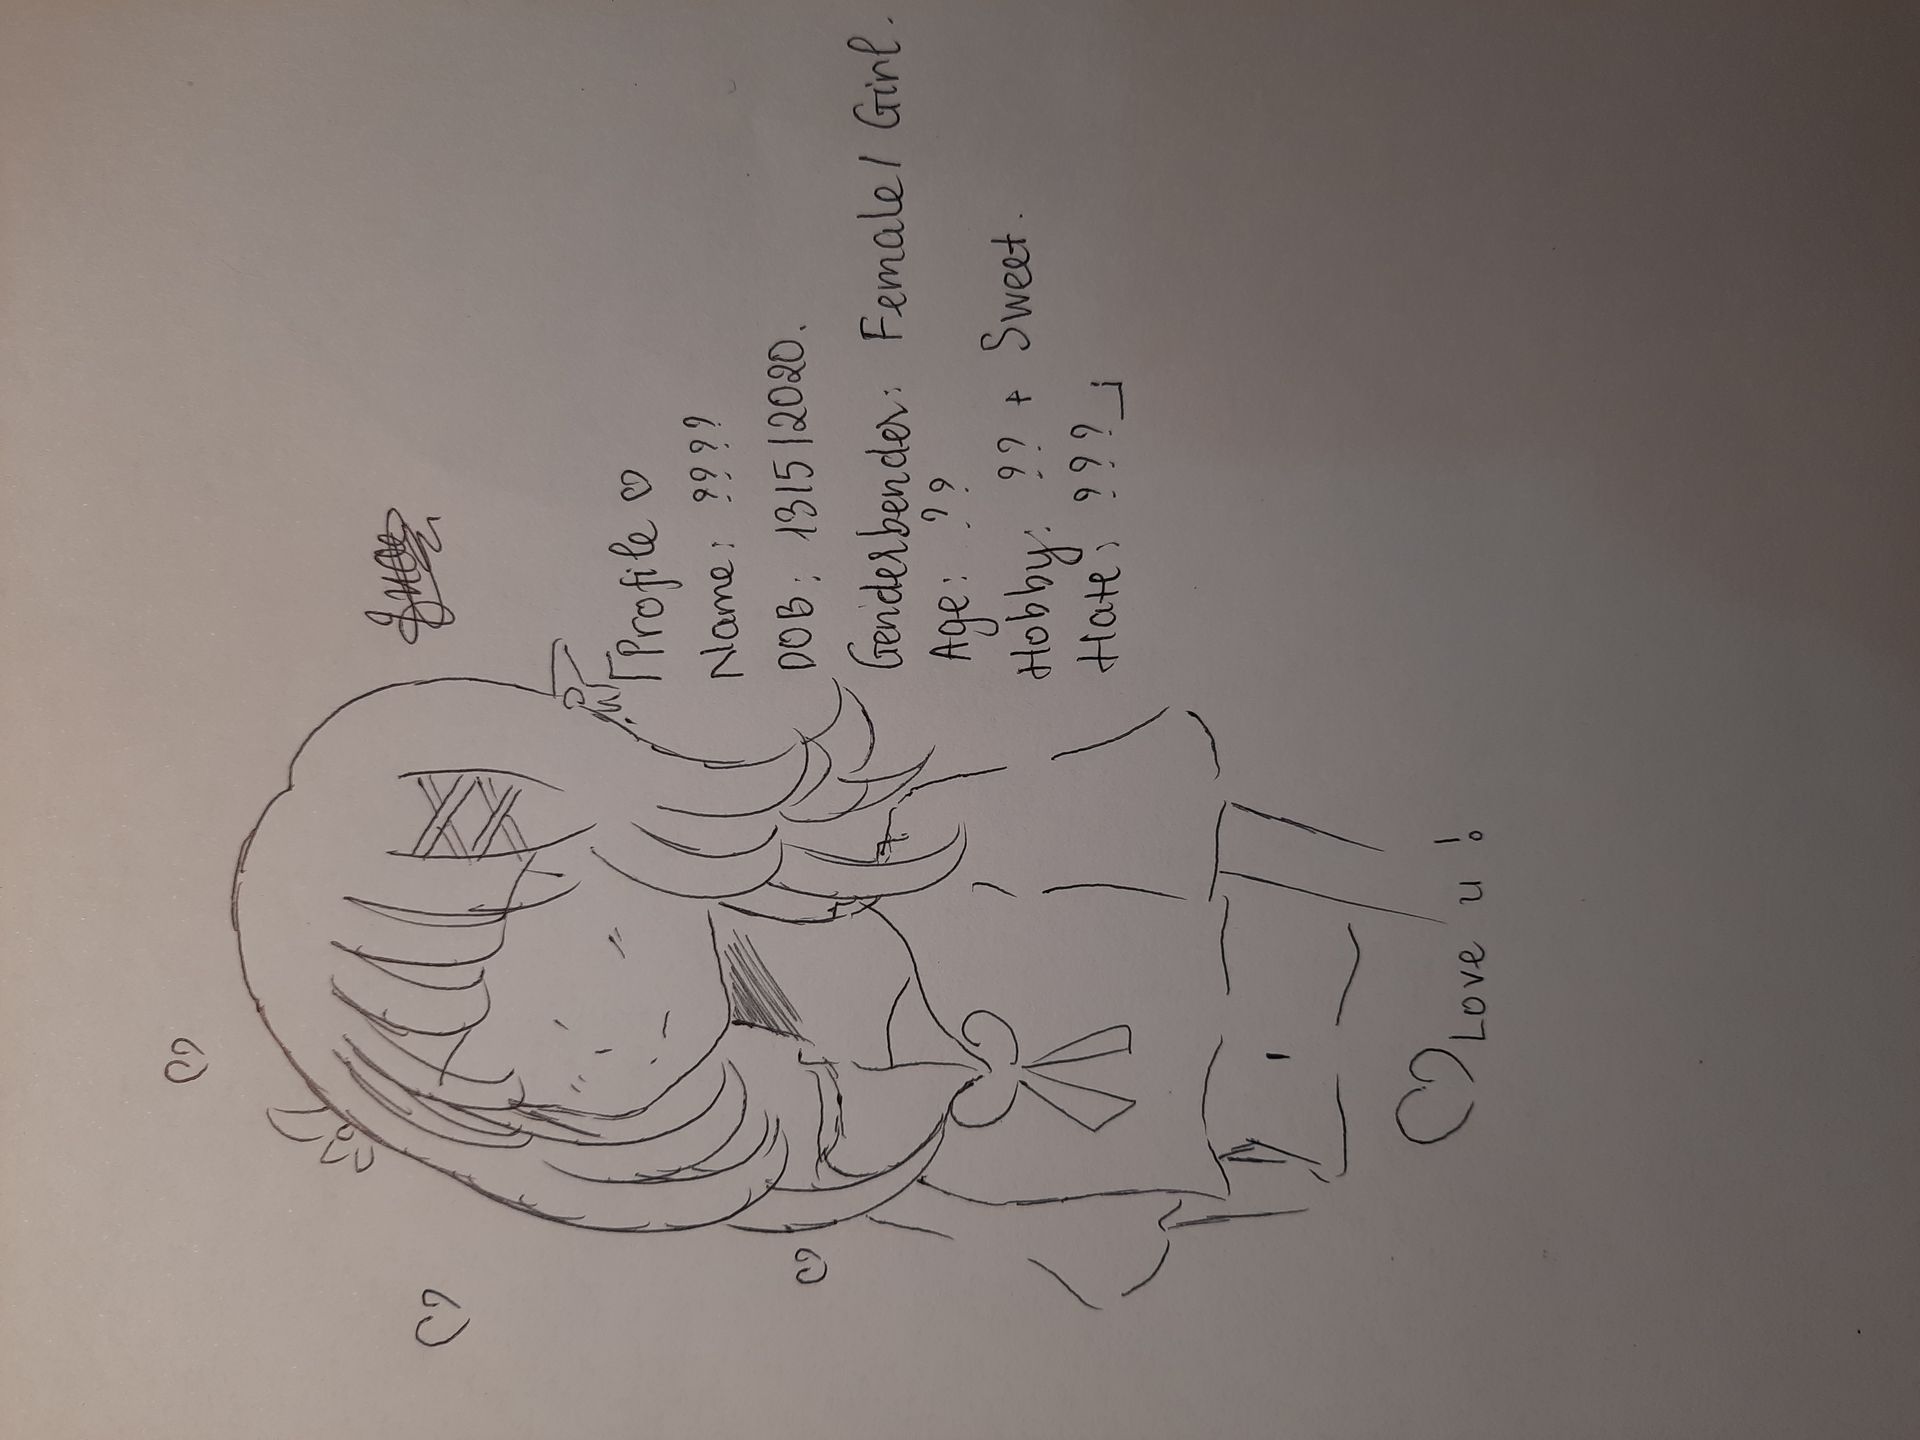 「Profile ♡
Name: ????
DOB: 13/5/2020.
Genderbender: Female/Girl.
Age: ??
Hobby: ?? + Sweet.
Hate: ???」
♡ Love u!